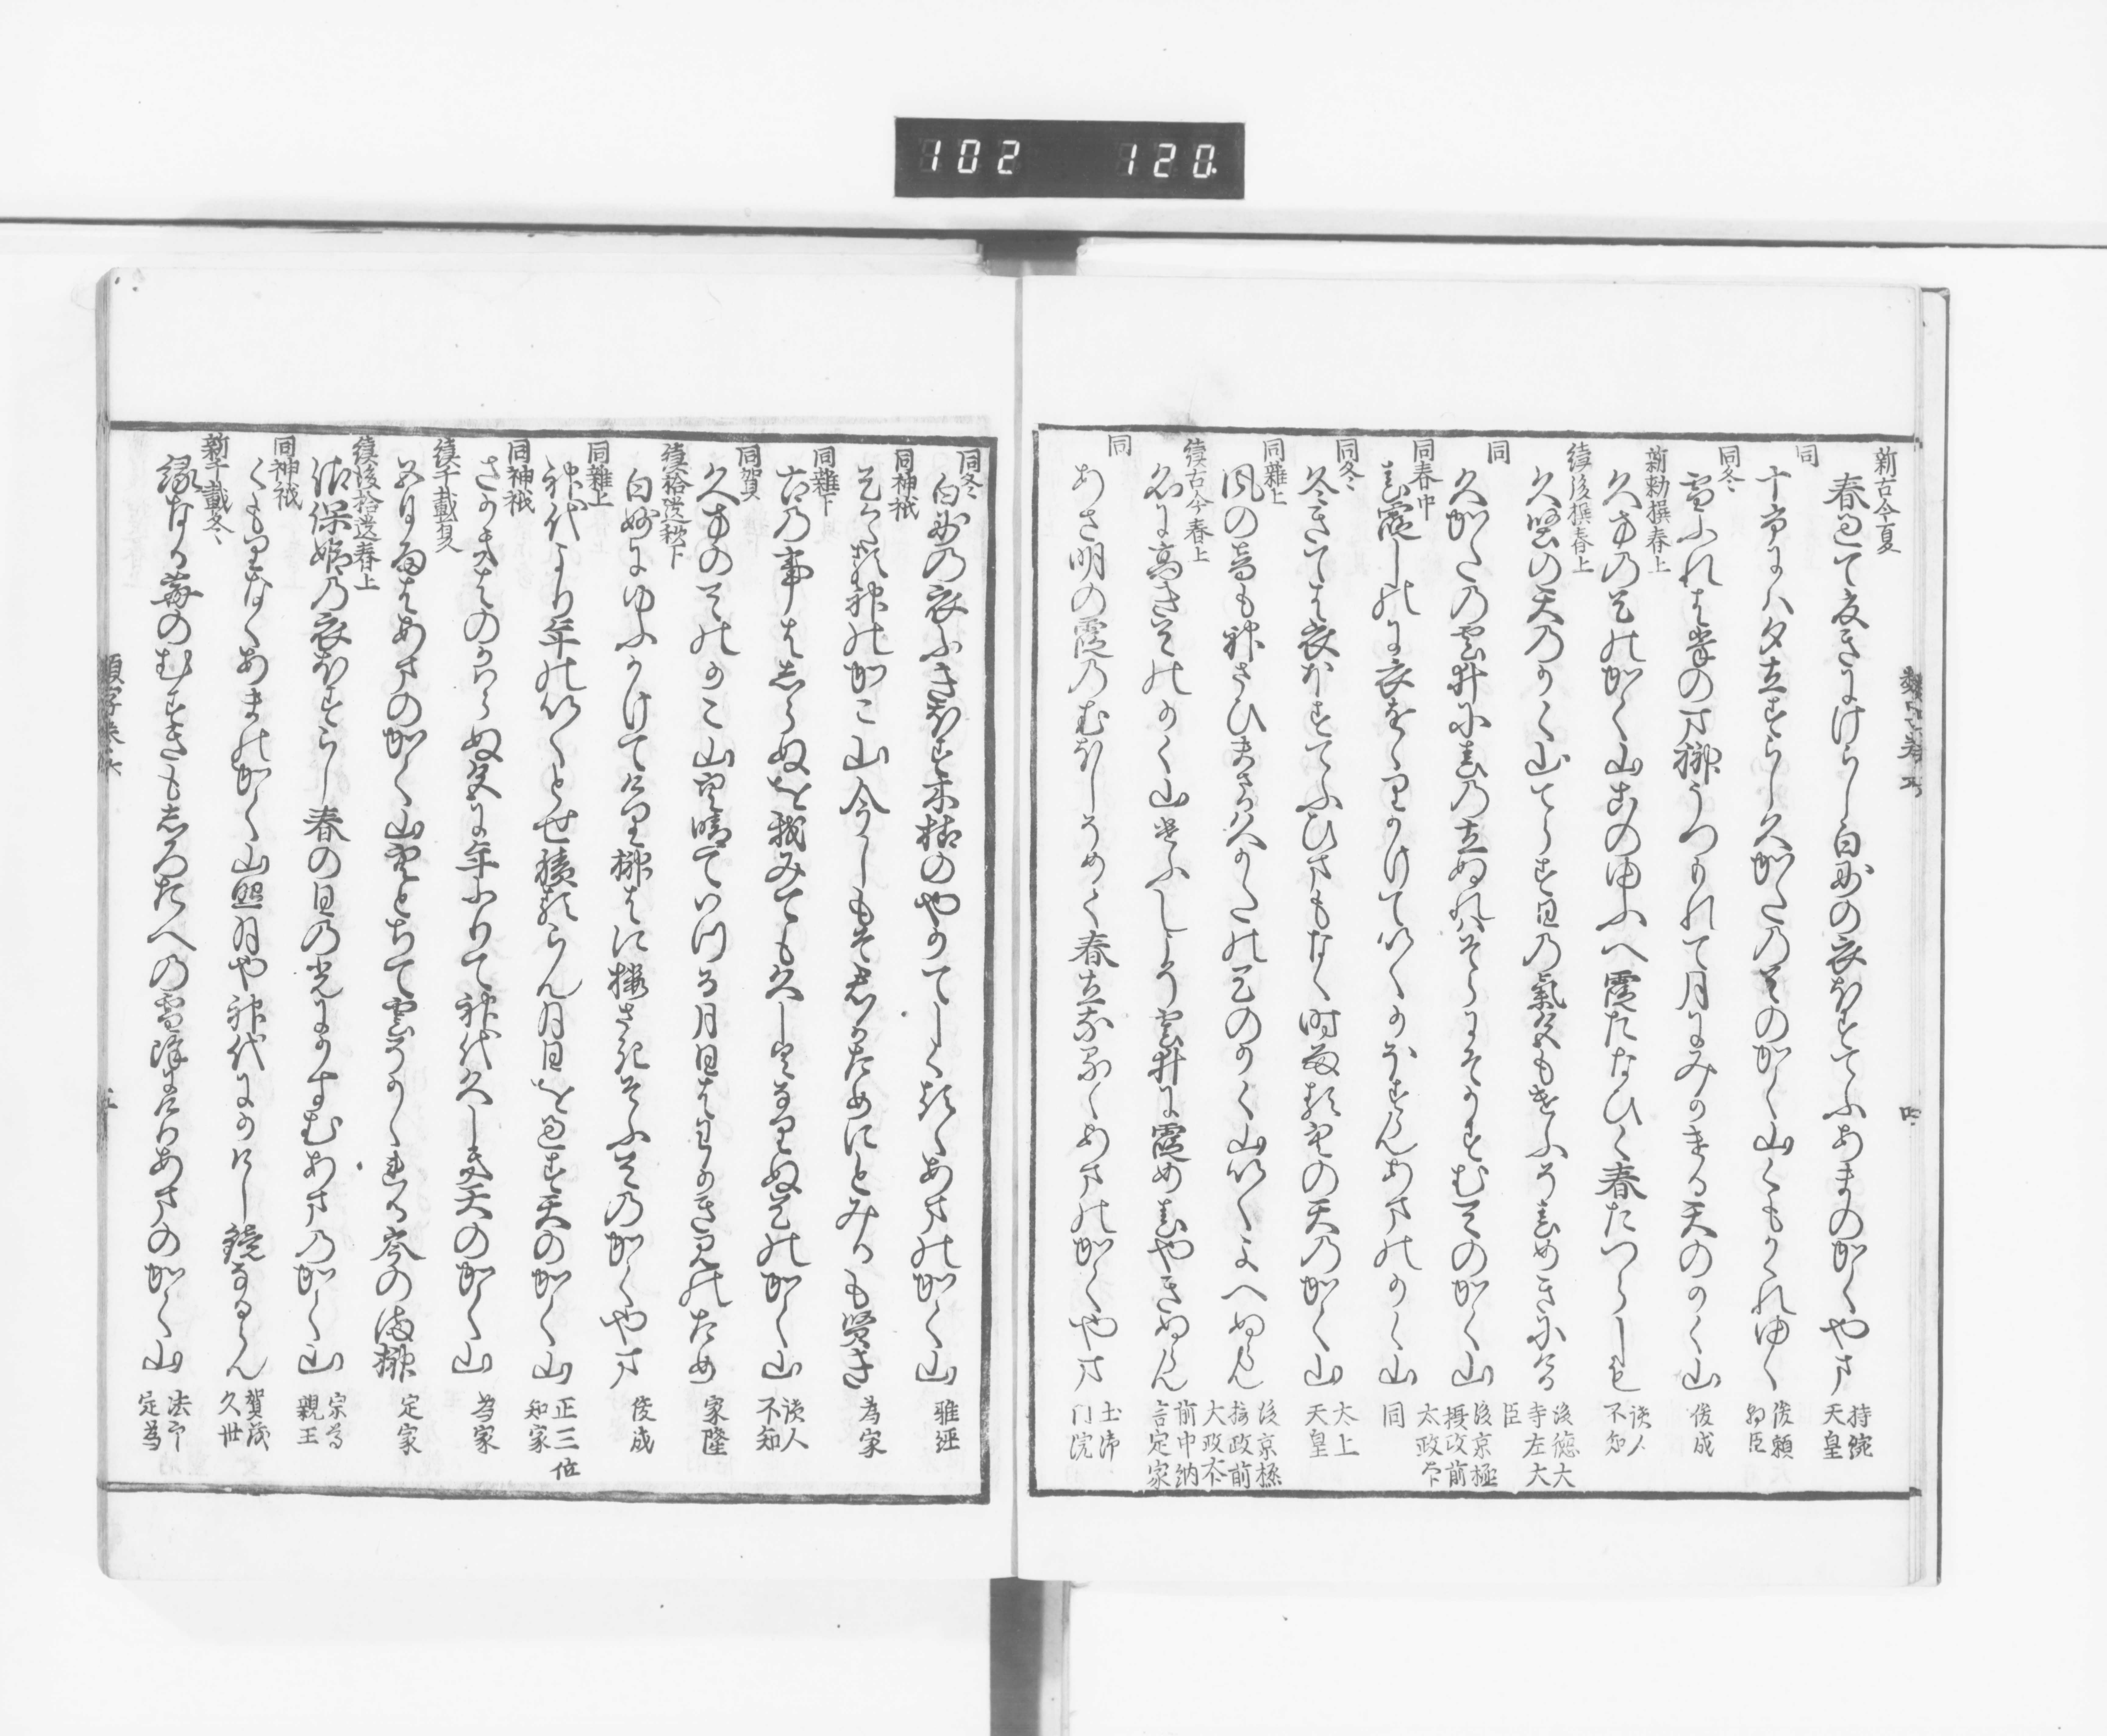 102 120
新古今夏
春過て夏きにけらし白妙の衣ほすてふあまのかく山
持統天皇
同
十市には夕立すらし久かたの天のかく山くもかくれゆく
俊頼朝臣
同冬
雪ふれは峯のま榊うつもれて月にみかける天のかく山
俊成
新勅撰春上
久方の天のかく山このゆふへ霞たなひく春たつらしも
読人不知
続後撰春上
久堅の天のかく山てらす日の氣色もけふそ春めきにける
後徳大寺左大臣
同
久かたの雲井に春の立ぬれは空にそかすむ天のかく山
後京極摂政前太政大臣
同春中
春霞しのに衣を
あまのかく山
同
同冬
冬きては衣ほすてふひまもなく時雨る空の天のかく山
太上天皇
同雑上
風の音も神さひまさる久かたの天のかく山いくよへぬらん
後京極摂政前太政大臣
続古今春上
名に高き天のかく山けふしこそ雲井に霞め春やきぬらん
前中納言定家
同
あさ明の霞の
春立
あまのかく山
土御門院
同冬
白妙の衣ふきほす木枯のやかてしくるゝあまのかく山
雅経
同神祇
為家
同雑下
古の事はしらぬを我みても久しくなりぬ天のかく山
読人不知
同賀
久方の天のかこ山空晴ていつる月日も我か君のため
家隆
続拾遺秋下
白妙にゆふかけてけり榊はに桜さきそふ天のかく山
俊成
同雑上
神代より年のいくとせ積るらん月日を過す天のかく山
正三位知家
同神祇
さかき
年ふりて神代久しき天のかく山
為家
続千載夏
五月雨はあまのかく山空とちて雲そかゝれる峯のま榊
定家
続後拾遺春上
佐保姫の衣ほすらし春の日の光にかすむあまのかく山
宗尊親王
同神祇
くもりなくあまのかく山照月や神代にかけし鏡なるらん
賀茂久世
新千載冬
あまのかく山
法印定為